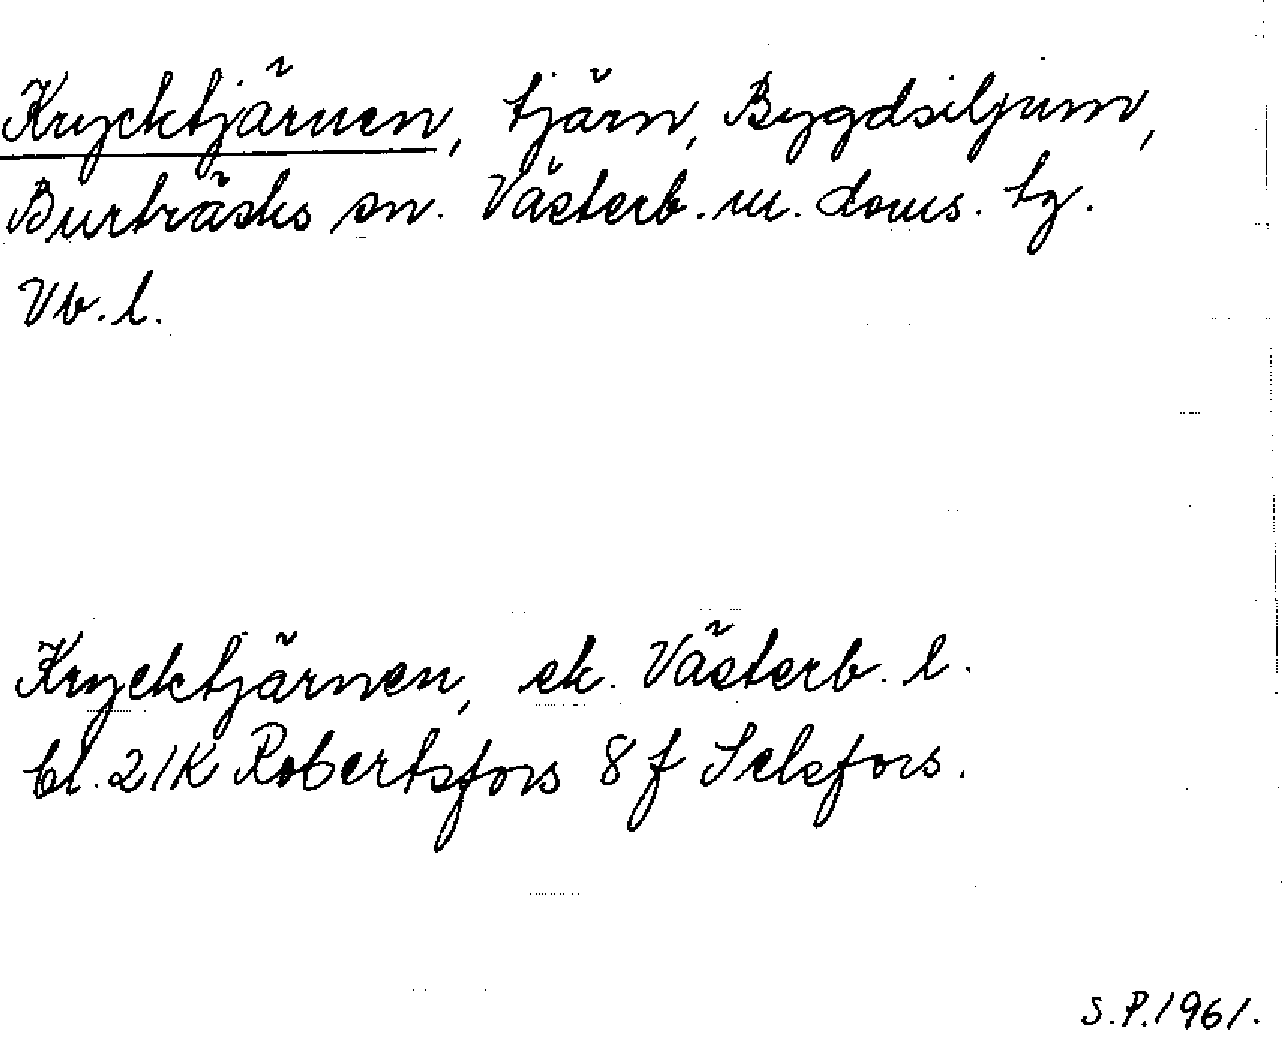 Krycktjärnen, tjärn, Bygdsiljum,
Burträsks sn. Västerb. m. doms. tg.
Vb. l.
Krycktjärnen, ek. Västerb. l.
bl. 21K Robertsfors 8 f Selsfors.
S.P. 1961.